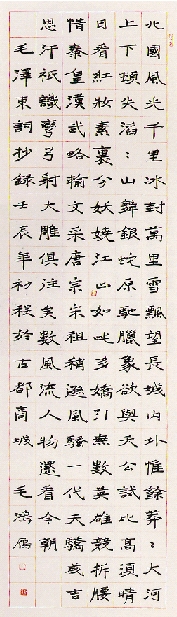 北國風光千里冰封萬里雪飄望長城內外惟餘莽：大河
上下頓失滔：山舞銀蛇原馳臘象欲與天公試比高須晴
日看紅妝素裹分妖嬈江山如此多嬌引無數英雄競折腰
惜秦皇漢武略輸文采唐宗宋祖稍遜風騷一代天驕成吉
思汗祇識彎弓射大雕俱往矣數風流人物還看今朝
毛澤東詞抄錄壬辰年初秋於古都商城 毛鴻雁